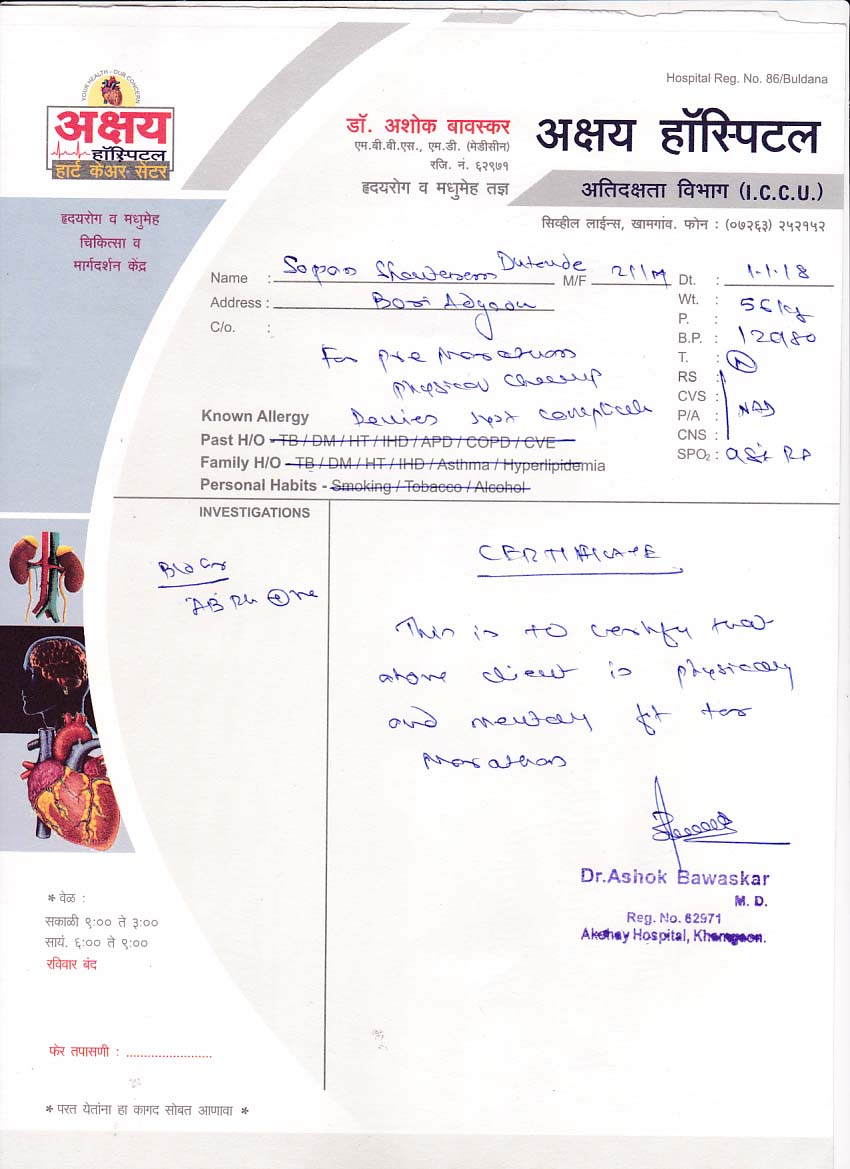 Hospital Reg. No. 86/Buldana
YOUR HEALTH - OUR CONCERN
अक्षय
हॉस्पिटल
हार्ट केअर सेंटर
डॉ. अशोक बावस्कर
एम.बी.बी.एस., एम.डी. (मेडीसीन)
रजि. नं. ६२९७१
हृदयरोग व मधुमेह तज्ञ
अक्षय हॉस्पिटल
अतिदक्षता विभाग (I.C.C.U.)
सिव्हील लाईन्स, खामगांव. फोन : (०७२६३) २५२१५२
हृदयरोग व मधुमेह
चिकित्सा व
मार्गदर्शन केंद्र
Name : Sopan Dutonde M/F 21/M Dt. : 1.1.18
Address : Bori Adgaon Wt. : 56 kg
C/o. : P. :
B.P. : 120/80
For pre Marathon T. : N
physical checkup RS :
CVS :
Known Allergy Denies P/A : NAD
Past H/O - TB / DM / HT / IHD / APD / COPD / CVE CNS :
Family H/O - TB / DM / HT / IHD / Asthma / Hyperlipidemia SPO₂ :
Personal Habits - Smoking / Tobacco / Alcohol
INVESTIGATIONS
Bld Gr
"AB" Rh +ve
CERTIFICATE
This is to certify that
above client is physically
and mentally fit for
Marathon
Dr.Ashok Bawaskar
M. D.
Reg. No. 62971
Akshay Hospital, Khamgaon.
* वेळ :
सकाळी ९:०० ते ३:००
सायं. ६:०० ते ९:००
रविवार बंद
फेर तपासणी : ........................
* परत येतांना हा कागद सोबत आणावा *